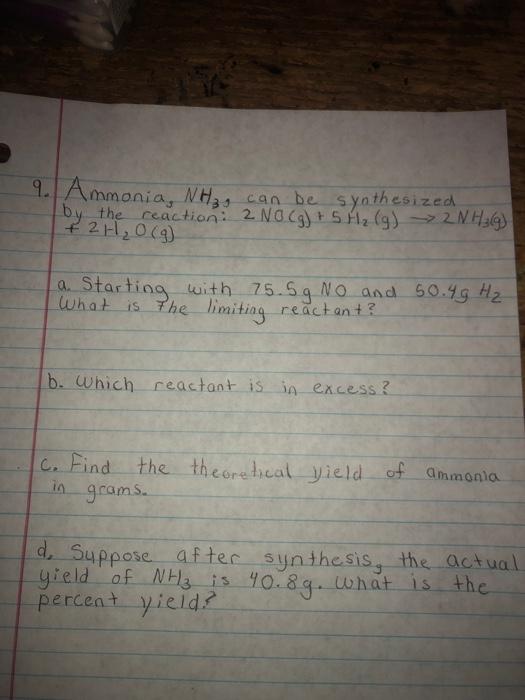 9. Ammonia, NH₃, can be synthesized
by the reaction: 2 NO(g) + 5 H₂ (g) → 2 NH₃(g)
+ 2 H₂O(g)
a. Starting with 75.5g NO and 50.4g H₂
What is The limiting reactant?
b. Which reactant is in excess?
c. Find the theoretical yield of ammonia
in grams.
d. Suppose after synthesis, the actual
yield of NH₃ is 40.8g. What is the
percent yield?